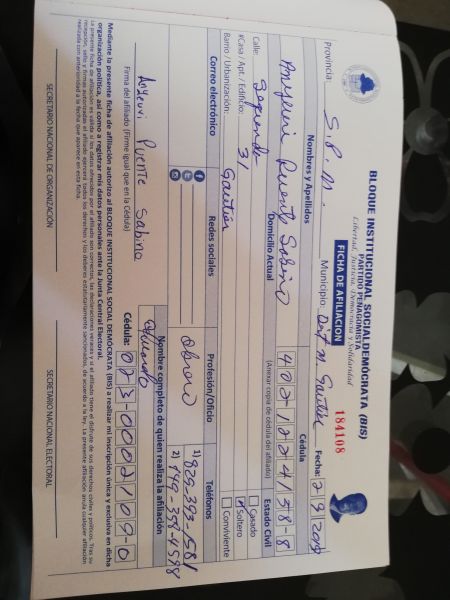 BLOQUE INSTITUCIONAL SOCIALDEMÓCRATA (BIS)
PARTIDO PEÑAGOMISTA
Libertad, Justicia, Democracia y Solidaridad
FICHA DE AFILIACIÓN
184108
Provincia: S.P.M. Municipio: Dist M. Gautier Fecha: 2-9-2019
Nombres y Apellidos Cédula
Puente Sabino 402-1224158-8
Domicilio Actual (Anexar copia de cédula del afiliado) Estado Civil
Calle: Segunda Casado
#Casa / Apt. / Edificio: 31 Soltero
Barrio / Urbanización: Gautier Conviviente
Correo electrónico Redes sociales Profesión/Oficio Teléfonos
Obrero 1) 829-393-1581
2) 849-358-4598
Nombre completo de quien realiza la afiliación
Puente Sabino
Firma del afiliado (Firme igual que en la Cédula) Cédula: 023-0002109-0
Mediante la presente ficha de afiliación autorizo al BLOQUE INSTITUCIONAL SOCIAL DEMÓCRATA (BIS) a realizar mi inscripción única y exclusiva en dicha
organización política, así como a registrar mis datos personales ante la Junta Central Electoral.
La presente ficha de afiliación es válida si los datos ofrecidos por el afiliado son correctos, las declaraciones veraces y si el afiliado tiene el disfrute de sus derechos civiles y políticos. Tras su
recepción, sello y firmas autorizadas el afiliado ejercerá todos los derechos y los deberes estatutariamente sancionados, de acuerdo a la ley. La presente afiliación anula cualquier afiliación
realizada con anterioridad a la fecha que aparece en esta ficha.
SECRETARIO NACIONAL DE ORGANIZACIÓN SECRETARIO NACIONAL ELECTORAL